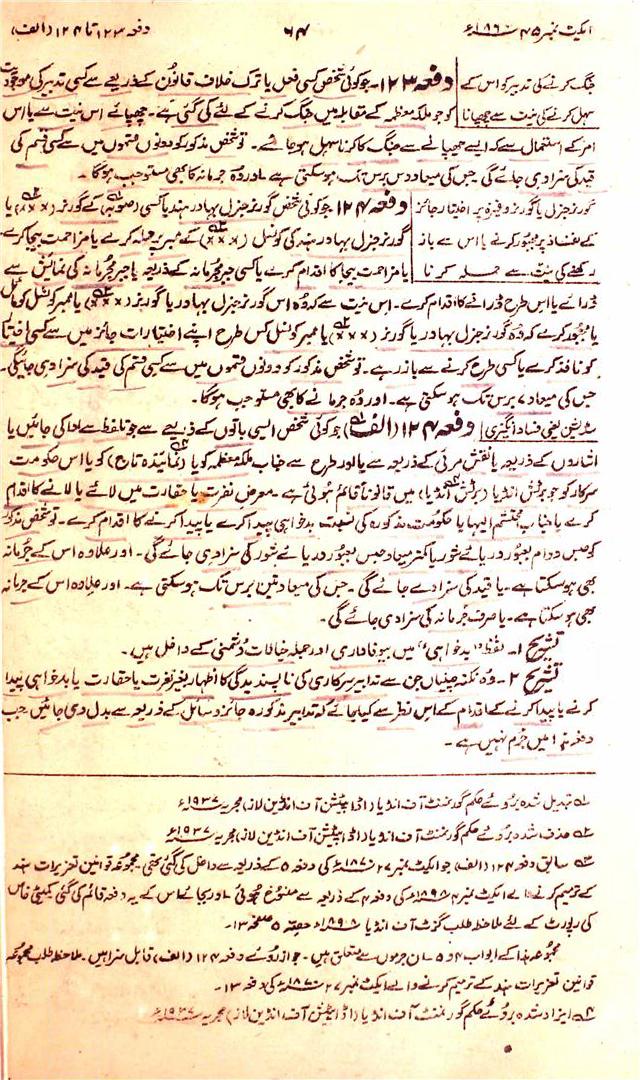 ایکٹ نمبر ۴۵ ۱۸۶۰ء
۶۴
دفعہ ۱۲۳ تا ۱۲۴ (الف)
جنگ کرنے کی تدبیر کو اس کے
سہل کرنے کی نیت سے چھپانا
دفعہ ۱۲۳۔ جو کوئی شخص کسی فعل یا ترک خلاف قانون کے ذریعے سے کسی تدبیر کی موجودیت
کو جو ملکہ معظمہ کے مقابلہ میں جنگ کرنے کے لئے کی گئی ہے۔ چھپائے اس نیت سے یا اس
امر کے احتمال سے کہ ایسے چھپانے سے جنگ کا کرنا سہل ہو جائے۔ تو شخص مذکور کو دونوں قسموں میں سے کسی قسم کی
قید کی سزا دی جائے گی جس کی میعاد دس برس تک ہو سکتی ہے۔ اور وہ جرمانہ کا بھی مستوجب ہوگا۔
گورنر جنرل یا گورنر وغیرہ پر اختیار جائز
کے نفاذ پر مجبور کرنے یا اس سے باز
رکھنے کی نیت سے حملہ کرنا
دفعہ ۱۲۴۔ جو کوئی شخص گورنر جنرل بہادر ہند یا کسی (صوبہ) کے گورنر (×××) یا
گورنر جنرل بہادر ہند کی کونسل (×××) کے ممبر پر حملہ کرے یا مزاحمت بیجا کرے
یا مزاحمت بیجا کا اقدام کرے یا کسی جبر مجرمانہ کے ذریعہ یا جبر مجرمانہ کی نمائش سے
ڈرائے یا اس طرح ڈرانے کا اقدام کرے۔ اس نیت سے کہ وہ اس گورنر جنرل بہادر یا گورنر (×××) یا ممبر کونسل کو مائل
یا مجبور کرے کہ وہ گورنر جنرل بہادر یا گورنر (×××) یا ممبر کونسل کس طرح اپنے اختیارات جائز میں سے کسی اختیار
کو نافذ کرے یا کسی طرح کرنے سے باز رہے۔ تو شخص مذکور کو دونوں قسموں میں سے کسی قسم کی قید کی سزا دی جائیگی۔
جس کی میعاد ۷ برس تک ہو سکتی ہے۔ اور وہ جرمانے کا بھی مستوجب ہوگا۔
سڈیشن یعنی فساد انگیزی
دفعہ ۱۲۴ (الف) جو کوئی شخص ایسی باتوں کے ذریعے سے جو تلفظ سے ادا کی جائیں یا
اشاروں کے ذریعہ یا نقش مرئی کے ذریعہ سے یا اور طرح سے جناب ملکہ معظمہ کو یا (نمائندہ تاج) کو یا اس حکومت
سرکار کو جو برٹش انڈیا (برٹش انڈیا) میں قانوناً قائم ہوئی ہے۔ معرض نفرت یا حقارت میں لائے یا لانے کا اقدام
کرے یا جناب محتشم الیہا یا حکومت مذکورہ کی نسبت بدخواہی پیدا کرے یا پیدا کرنے کا اقدام کرے۔ تو شخص مذکور
کو حبس دوام بعبور دریائے شور یا کمتر میعاد حبس بعبور دریائے شور کی سزا دی جائے گی۔ اور علاوہ اس کے جرمانہ
بھی ہو سکتا ہے۔ یا قید کی سزا دے جائے گی۔ جس کی میعاد تین برس تک ہو سکتی ہے۔ اور علاوہ اس کے جرمانہ
بھی ہو سکتا ہے۔ یا صرف جرمانہ کی سزا دی جائے گی۔
تشریح ۱۔ لفظ "بدخواہی" میں بیوفاداری اور جملہ خیالات دشمنی کے داخل ہیں۔
تشریح ۲۔ وہ نکتہ چینیاں جن سے تدابیر سرکاری کی ناپسندیدگی کا اظہار بغیر نفرت یا حقارت یا بدخواہی پیدا
کرنے یا پیدا کرنے کے اقدام کے اس نظر سے کیا جائے کہ تدابیر مذکورہ جائز وسائل کے ذریعہ سے بدل دی جائیں حسب
دفعہ ہذا میں جرم نہیں ہے۔
۱؎ تبدیل شدہ بروئے حکم گورنمنٹ آف انڈیا (اڈاپٹیشن آف انڈین لاز) مجریہ ۱۹۳۷ء
۲؎ حذف شدہ بروئے حکم گورنمنٹ آف انڈیا (اڈاپٹیشن آف انڈین لاز) مجریہ ۱۹۳۷ء
۳؎ سابق دفعہ ۱۲۴ (الف) جو ایکٹ نمبر ۲۷ ۱۸۷۰ء کی دفعہ ۵ کے ذریعہ سے داخل کی گئی تھی۔ مجموعہ قوانین تعزیرات ہند
کے ترمیم کرنے والے ایکٹ نمبر ۴ ۱۸۹۸ء کی دفعہ ۴ کے ذریعہ سے منسوخ ہوئی اور بجائے اس کے یہ دفعہ قائم کی گئی کمیٹی خاص
کی رپورٹ کے لئے ملاحظہ طلب گزٹ آف انڈیا ۱۸۹۸ء حصہ ۵ صفحہ ۱۳۔
مجموعہ ہذا کے ابواب ۴ و ۵۔ ان جرموں سے متعلق ہیں۔ جو از روئے دفعہ ۱۲۴ (الف) قابل سزا ہیں۔ ملاحظہ طلب مجموعہ
قوانین تعزیرات ہند کے ترمیم کرنے والے ایکٹ نمبر ۲۷ ۱۸۷۰ء کی دفعہ ۱۳۔
۴؎ ایزاد شدہ بروئے حکم گورنمنٹ آف انڈیا (اڈاپٹیشن آف انڈین لاز) مجریہ ۱۹۳۷ء